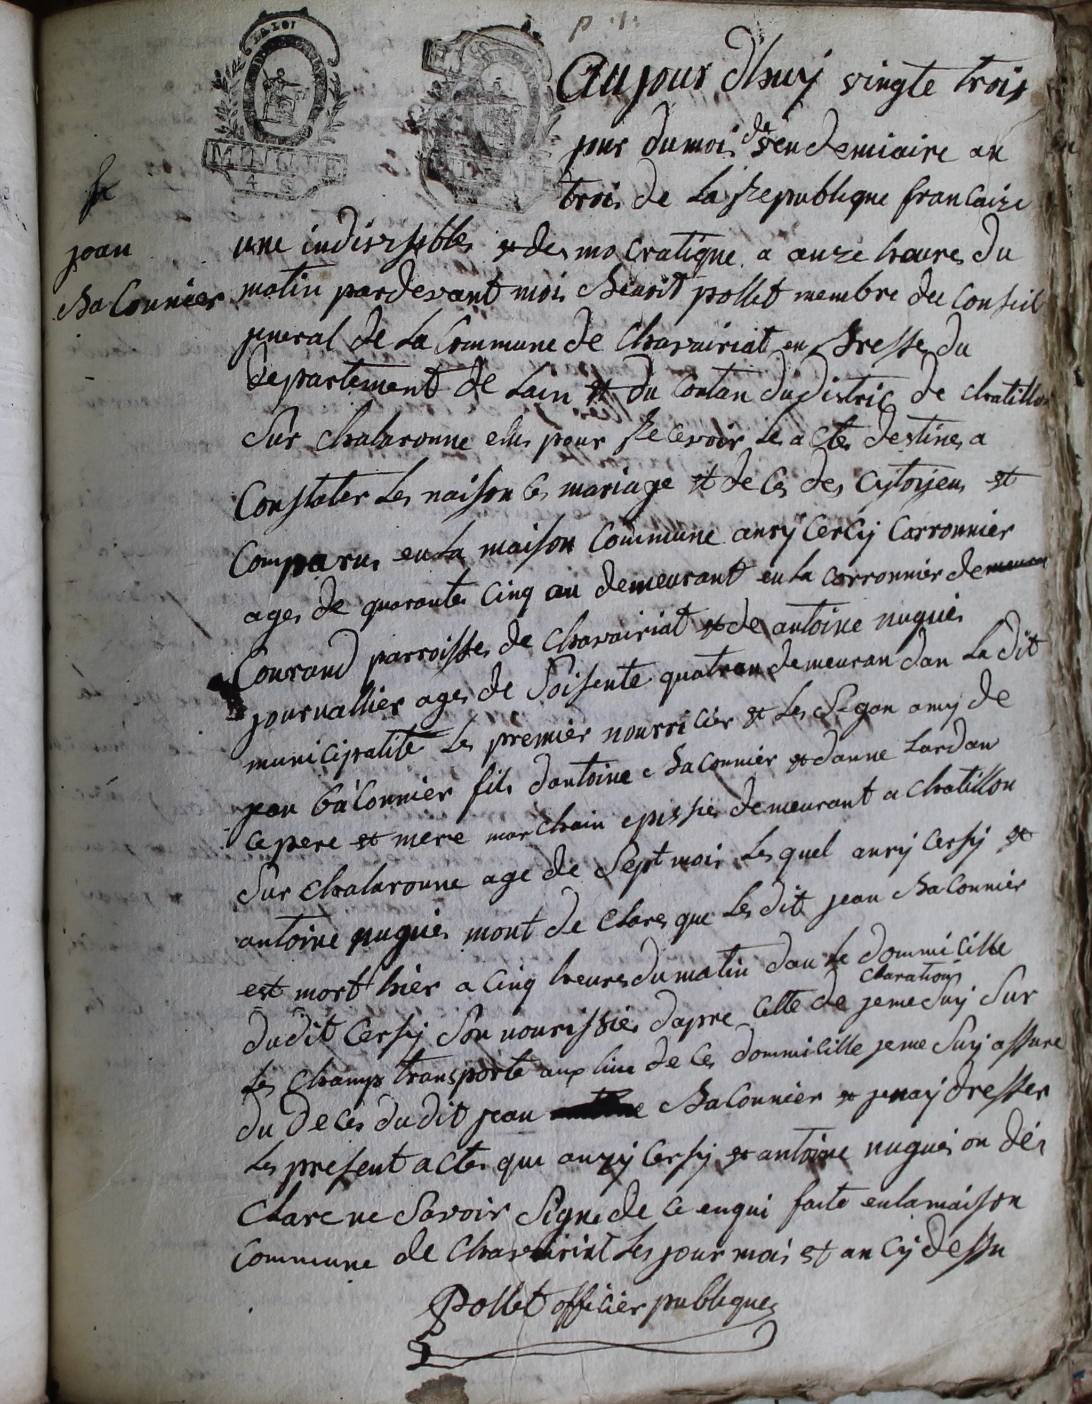 p. 1.
LA LOI
MINUTE
4 S
Aujour dhuy vingte trois
jour du mois de vendemiaire an
trois de La Republique francaize
joan
Baconnier
une indivisible et democratique a onze heures du
matin pardevant moi Benoit pollet membre du Conseil
general de La Commune de Chavairiat en Bresse du
departement de Lain et du Contan du distric de chatillon
Sur chalaronne elus pour Recevoir Le acte destines a
Constater Les naison ces mariage et de ces des Citoyens et
Comparus en La maison Commune anry Cercy Carronnier
ages de quarante Cinq an demeurant en La carronnier de
Courand parroisse de Chavairiat et de antoine nugues
journallier ages de Soisente quatre an demeuran dan La dit
municipalité Le premier nourricier et Les Segon amy de
jean baConnier fils dantoine BaConnier et danne Lardan
Ce pere et mere marchain epissier demeurant a Chatillon
Sur chalaronne age de Sept mois Les quel anry Cersy et
antoine nugues mont de Clare que Les dit jean BaConnier
est mort hier a Cinq heures du matin dan Le dommicille
du dit Cersy Son nourissier dapre Cette de clarations jeme Suy Sur
Les Champs transporte aux lieu de Ces dommicille jeme Suy assure
du deces du dit jean BaConnier et jenay dresser
Les present actes que anry Cersy et antoine nugues on de
Clare ne Savoir Signe de Ce enqui faite en la maison
Commune de Chavairiat Les jour mois et an Cy dessu
Pollet officier publique